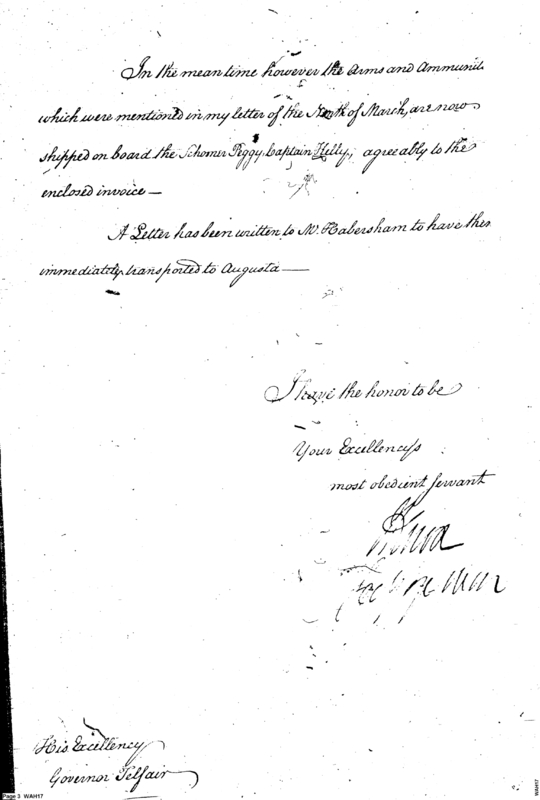 In the mean time however the Arms and Ammunit
which were mentioned in my letter of the of March, are now
shipped on board the Schooner Peggy, Captain Kelly, agreeably to the
enclosed invoice —
A Letter has been written to Mr. Habersham to have them
immediately transported to Augusta —
I have the honor to be
Your Excellency's
most obedient servant
His Excellency
Governor Telfair
Page 3 WAH17
WAH17